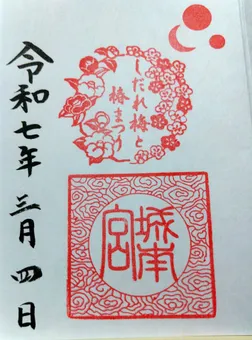 しだれ梅と
椿まつり
城南宮
令和七年三月四日